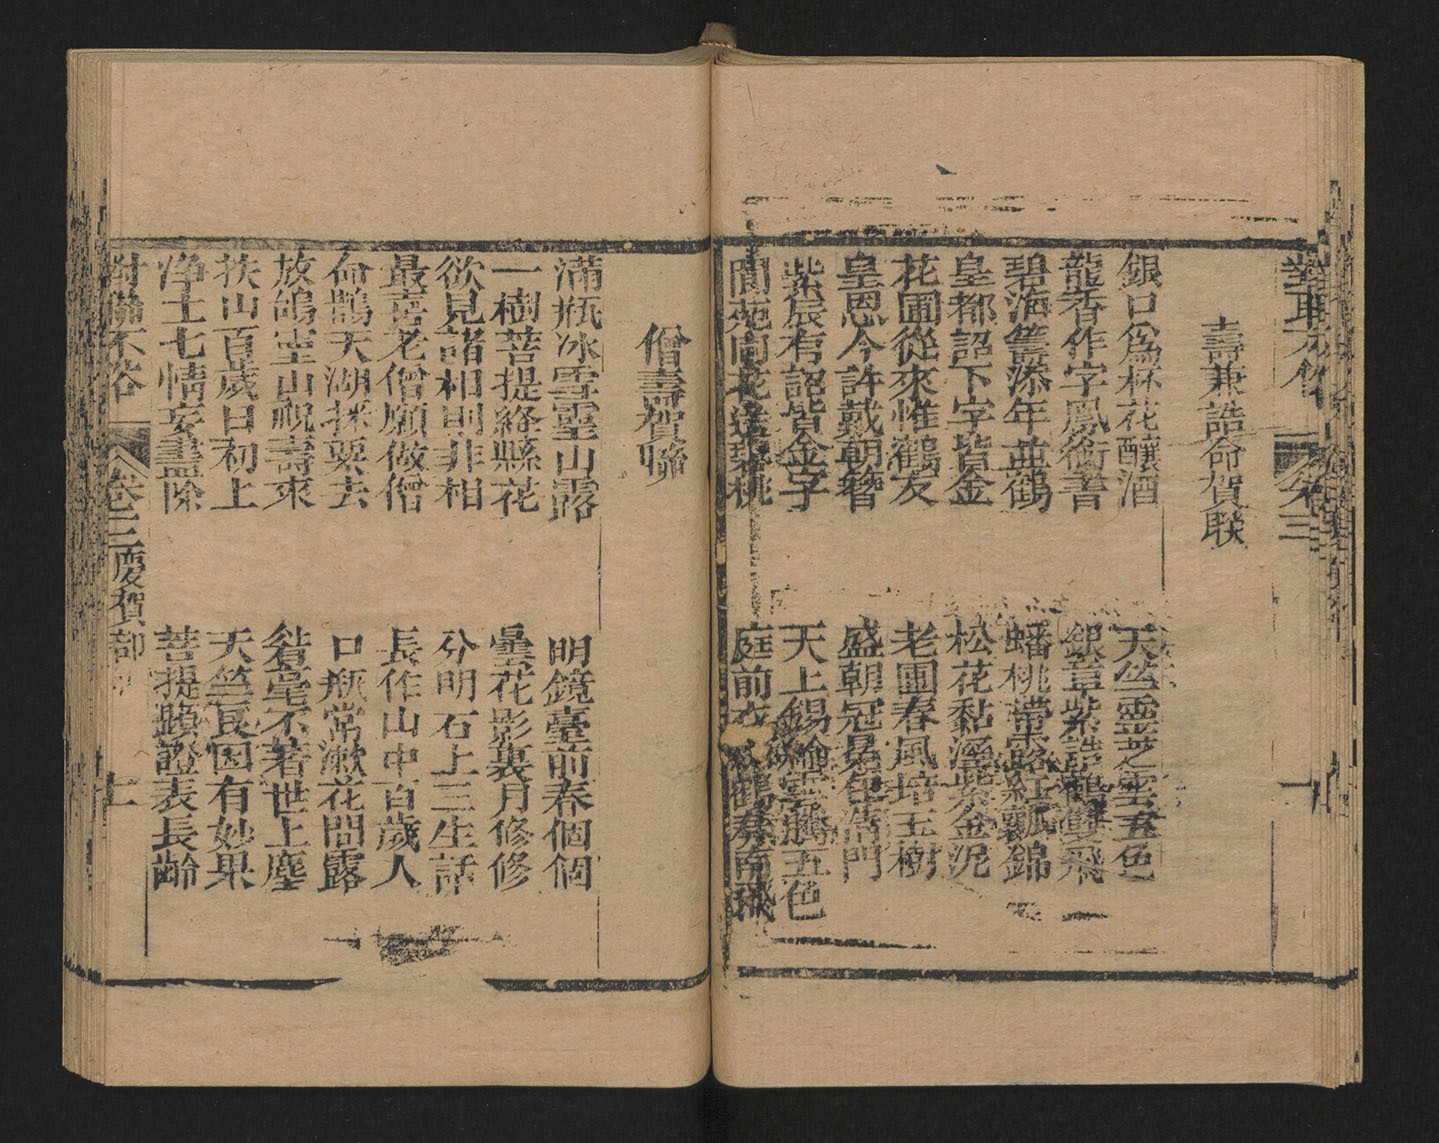 壽兼誥命賀联
銀口爲杯花釀酒
天竺靈芝雲五色
龍香作字鳳銜書
銀章紫誥鶴雙飛
碧海籌添年並鶴
蟠桃帶露紅瓤錦
皇都詔下字皆金
松花黏溼紫金泥
花圃從來惟鶴友
老圃春風培玉樹
皇恩今許戴朝簪
盛朝冠門
紫宸有詔皆金字
天上錫雲騰五色
閬苑向花送碧桃
庭前衣鶴奏南飛
僧壽賀聯
滿瓶冰雪靈山露
明鏡臺前春個個
一樹菩提絳縣花
曇花影裏月修修
欲見諸相則非相
分明石上三生話
最喜老僧願做僧
長作山中百歲人
命鵲天湖採栗去
口瓶常漱花間露
放鴿空山祝壽來
毫不著世上塵
扶山百歲日初上
天竺良因有妙果
净土七情妄盡除
菩提顯證表長齡
對聯不俗 卷三慶賀部 十一